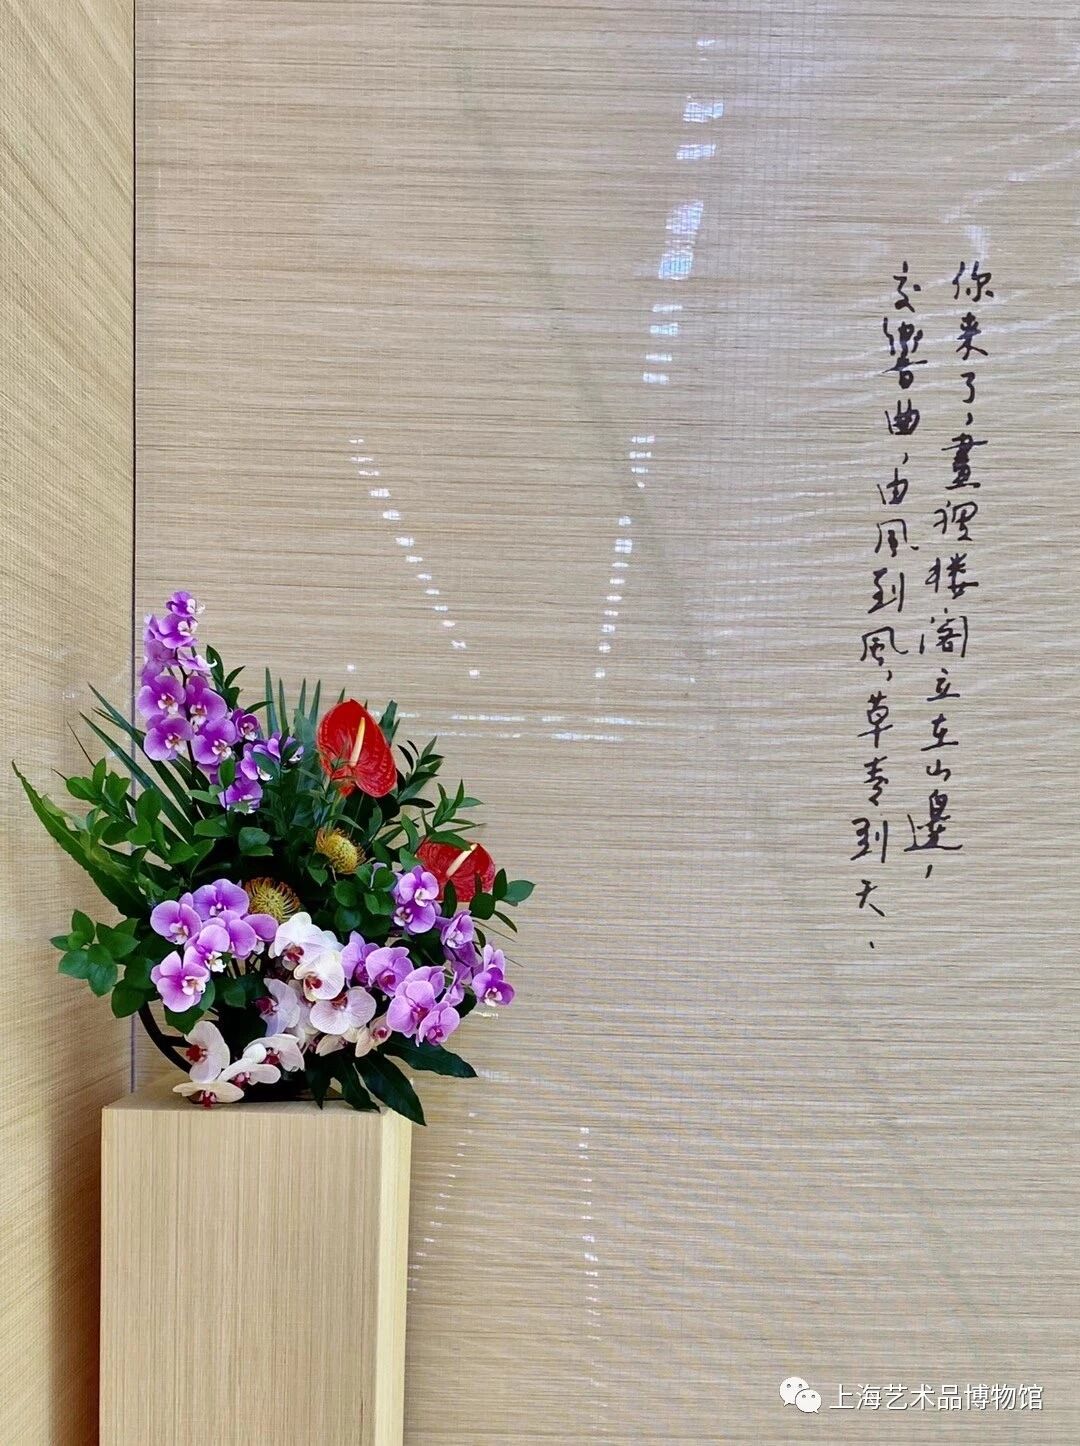 你来了，畫裡楼阁立在山邊，
交響曲，由風到風，草青到天．
上海艺术品博物馆